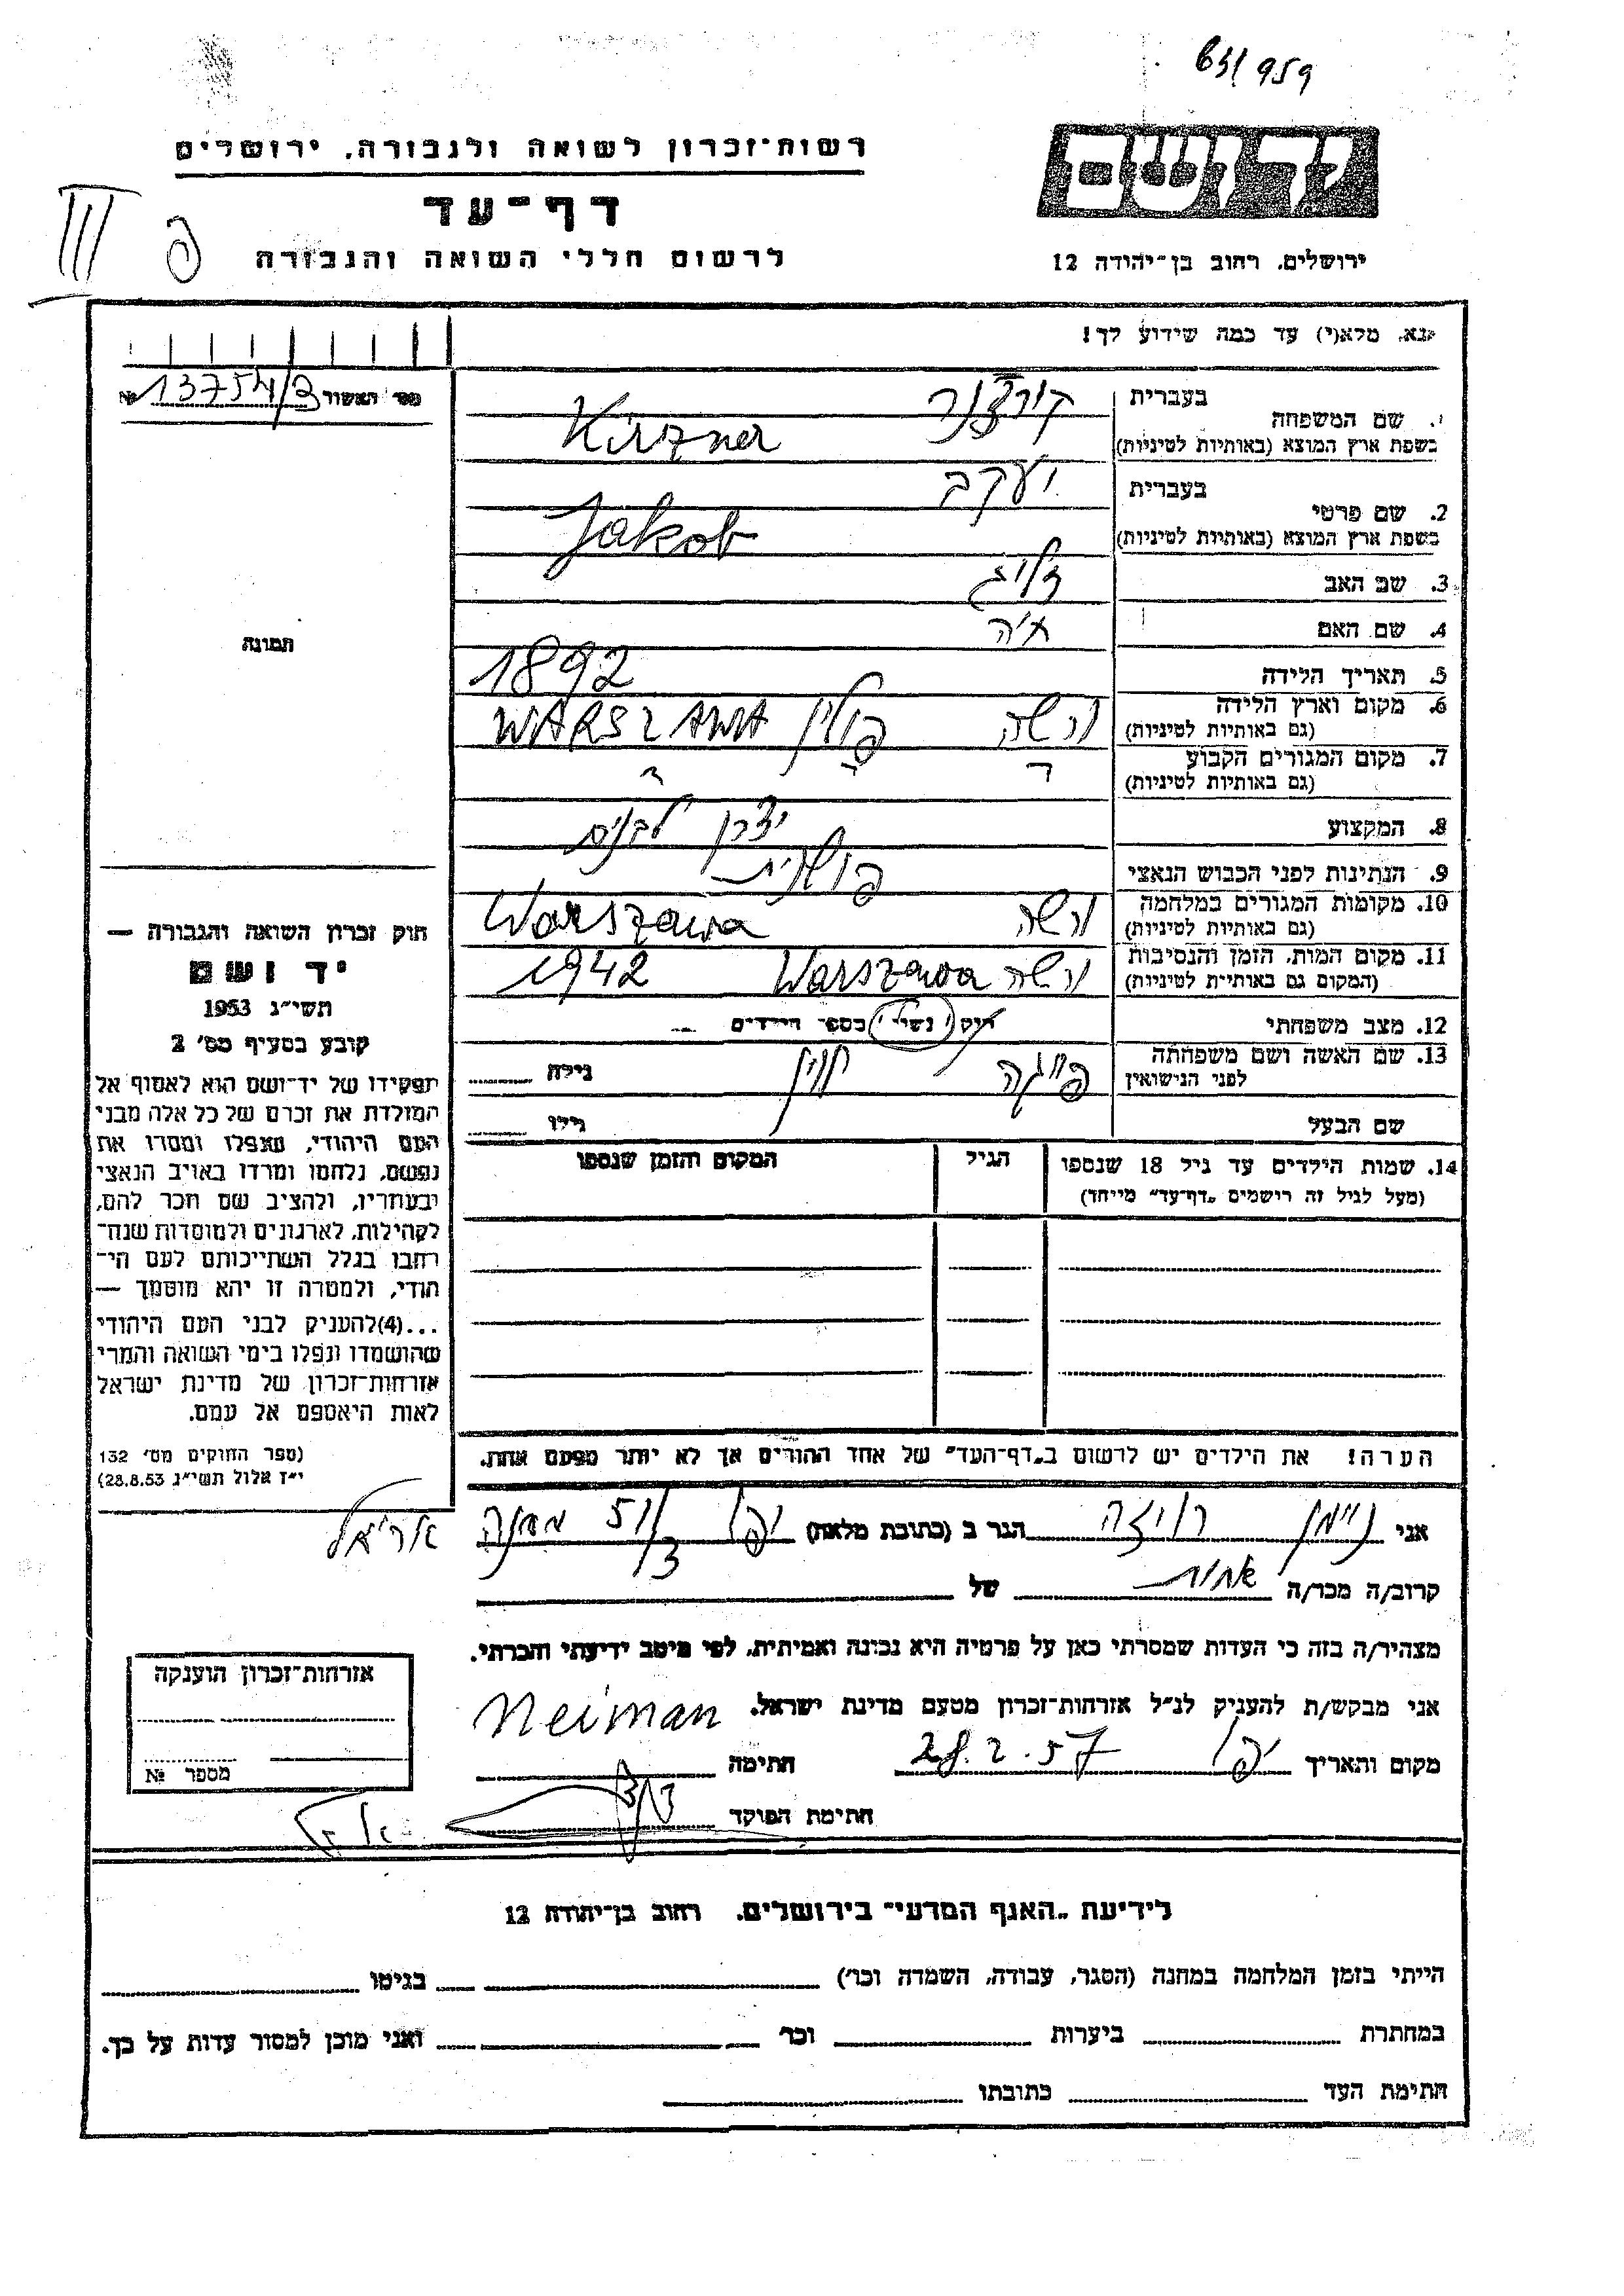 631959
רשות־זכרון לשואה ולגבורה, ירושלים
דף־עד
לרשום חללי השואה והגבורה
ידושם
ירושלים, רחוב בן־יהודה 12
III
נא, מלא(י) עד כמה שידוע לך!
מס׳ האשור № 13754/3
1. שם המשפחה בעברית קירצנר
בשפת ארץ המוצא (באותיות לטיניות) Kirzner
2. שם פרטי בעברית יעקב
בשפת ארץ המוצא (באותיות לטיניות) Jakob
3. שם האב זליג
4. שם האם חיה
5. תאריך הלידה 1892
6. מקום וארץ הלידה (גם באותיות לטיניות) ורשה פולין WARSZAWA
7. מקום המגורים הקבוע (גם באותיות לטיניות)
8. המקצוע יצרן לבנים
9. הנתינות לפני הכבוש הנאצי פולנית
10. מקומות המגורים במלחמה (גם באותיות לטיניות) ורשה Warszawa
11. מקום המות, הזמן והנסיבות (המקום גם באותיות לטיניות) ורשה Warszawa 1942
12. מצב משפחתי נשוי מספר הילדים
13. שם האשה ושם משפחתה לפני הנישואין פייגה גילה
שם הבעל גילו
14. שמות הילדים עד גיל 18 שנספו
(מעל לגיל זה רישמים „דף־עד״ מייחד)
הגיל
המקום והזמן שנספו
הערה! את הילדים יש לרשום ב„דף־העד״ של אחד ההורים אך לא יותר מפעם אחת.
תמונה
חוק זכרון השואה והגבורה —
יד ושם
תשי״ג 1953
קובע בסעיף מס׳ 2
תפקידו של יד־ושם הוא לאסוף אל
המולדת את זכרם של כל אלה מבני
העם היהודי, שנפלו ומסרו את
נפשם, נלחמו ומרדו באויב הנאצי
ובעוזריו, ולהציב שם וזכר להם,
לקהילות, לארגונים ולמוסדות שנח־
רבו בגלל השתייכותם לעם הי־
הודי, ולמטרה זו יהא מוסמך —
...(4)להעניק לבני העם היהודי
שהושמדו ונפלו בימי השואה והמרי
אזרחות־זכרון של מדינת ישראל
לאות היאספם אל עמם.
(ספר החוקים מס׳ 132
י״ז אלול תשי״ג 28.8.53)
אני ניימן רויזה הגר ב (כתובת מלאה) יפו
קרוב/ה מכר/ה אחות של
מצהיר/ה בזה כי העדות שמסרתי כאן על פרטיה היא נכונה ואמיתית, לפי מיטב ידיעתי והכרתי.
אני מבקש/ת להעניק לנ״ל אזרחות־זכרון מטעם מדינת ישראל.
מקום ותאריך יפו 28.2.57 חתימה Neiman
חתימת הפוקד
אזרחות־זכרון הוענקה
מספר №
לידיעת „האגף המדעי״ בירושלים, רחוב בן־יהודה 12
הייתי בזמן המלחמה במחנה (הסגר, עבודה, השמדה וכו׳) בגיטו
במחתרת ביערות וכו׳ ואני מוכן למסור עדות על כך.
חתימת העד כתובתו